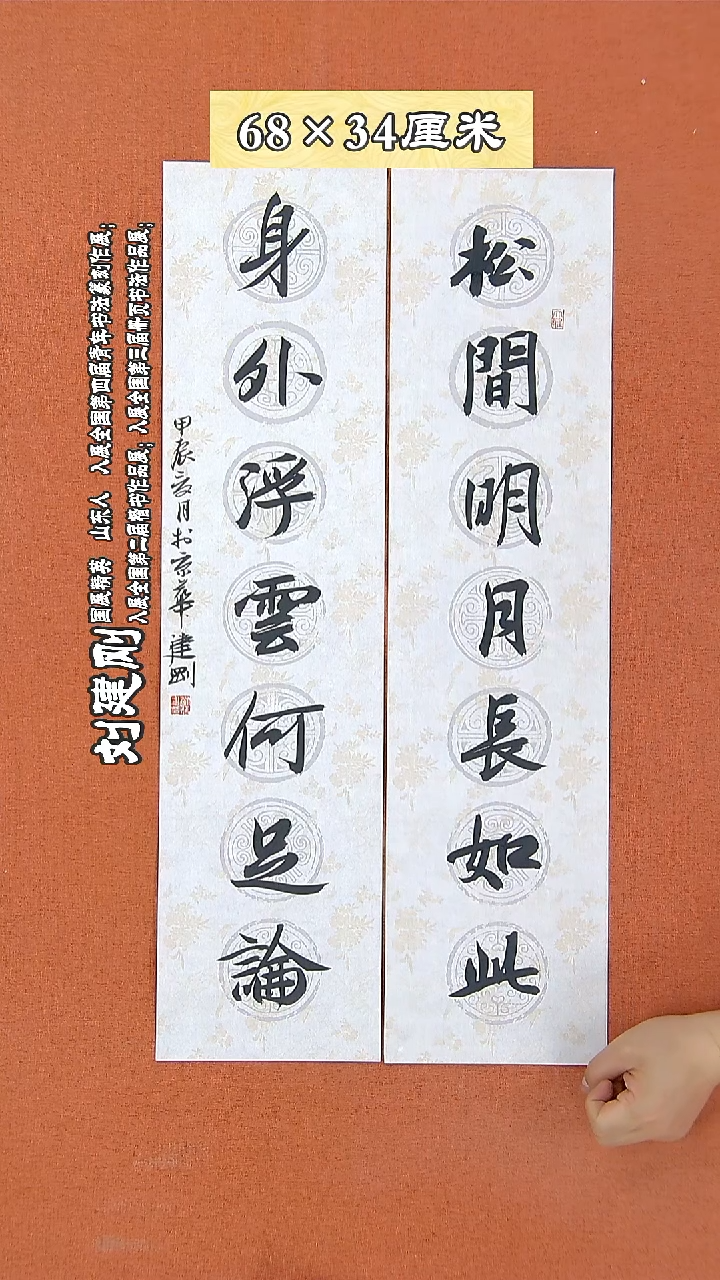 68×34厘米
松間明月長如此
身外浮雲何足論
甲辰亥月於京華建剛
刘建刚
国展精英 山东人 入展全国第四届青年书法篆刻作展;
入展全国第二届楷书作品展; 入展全国第三届册页书法作品展;